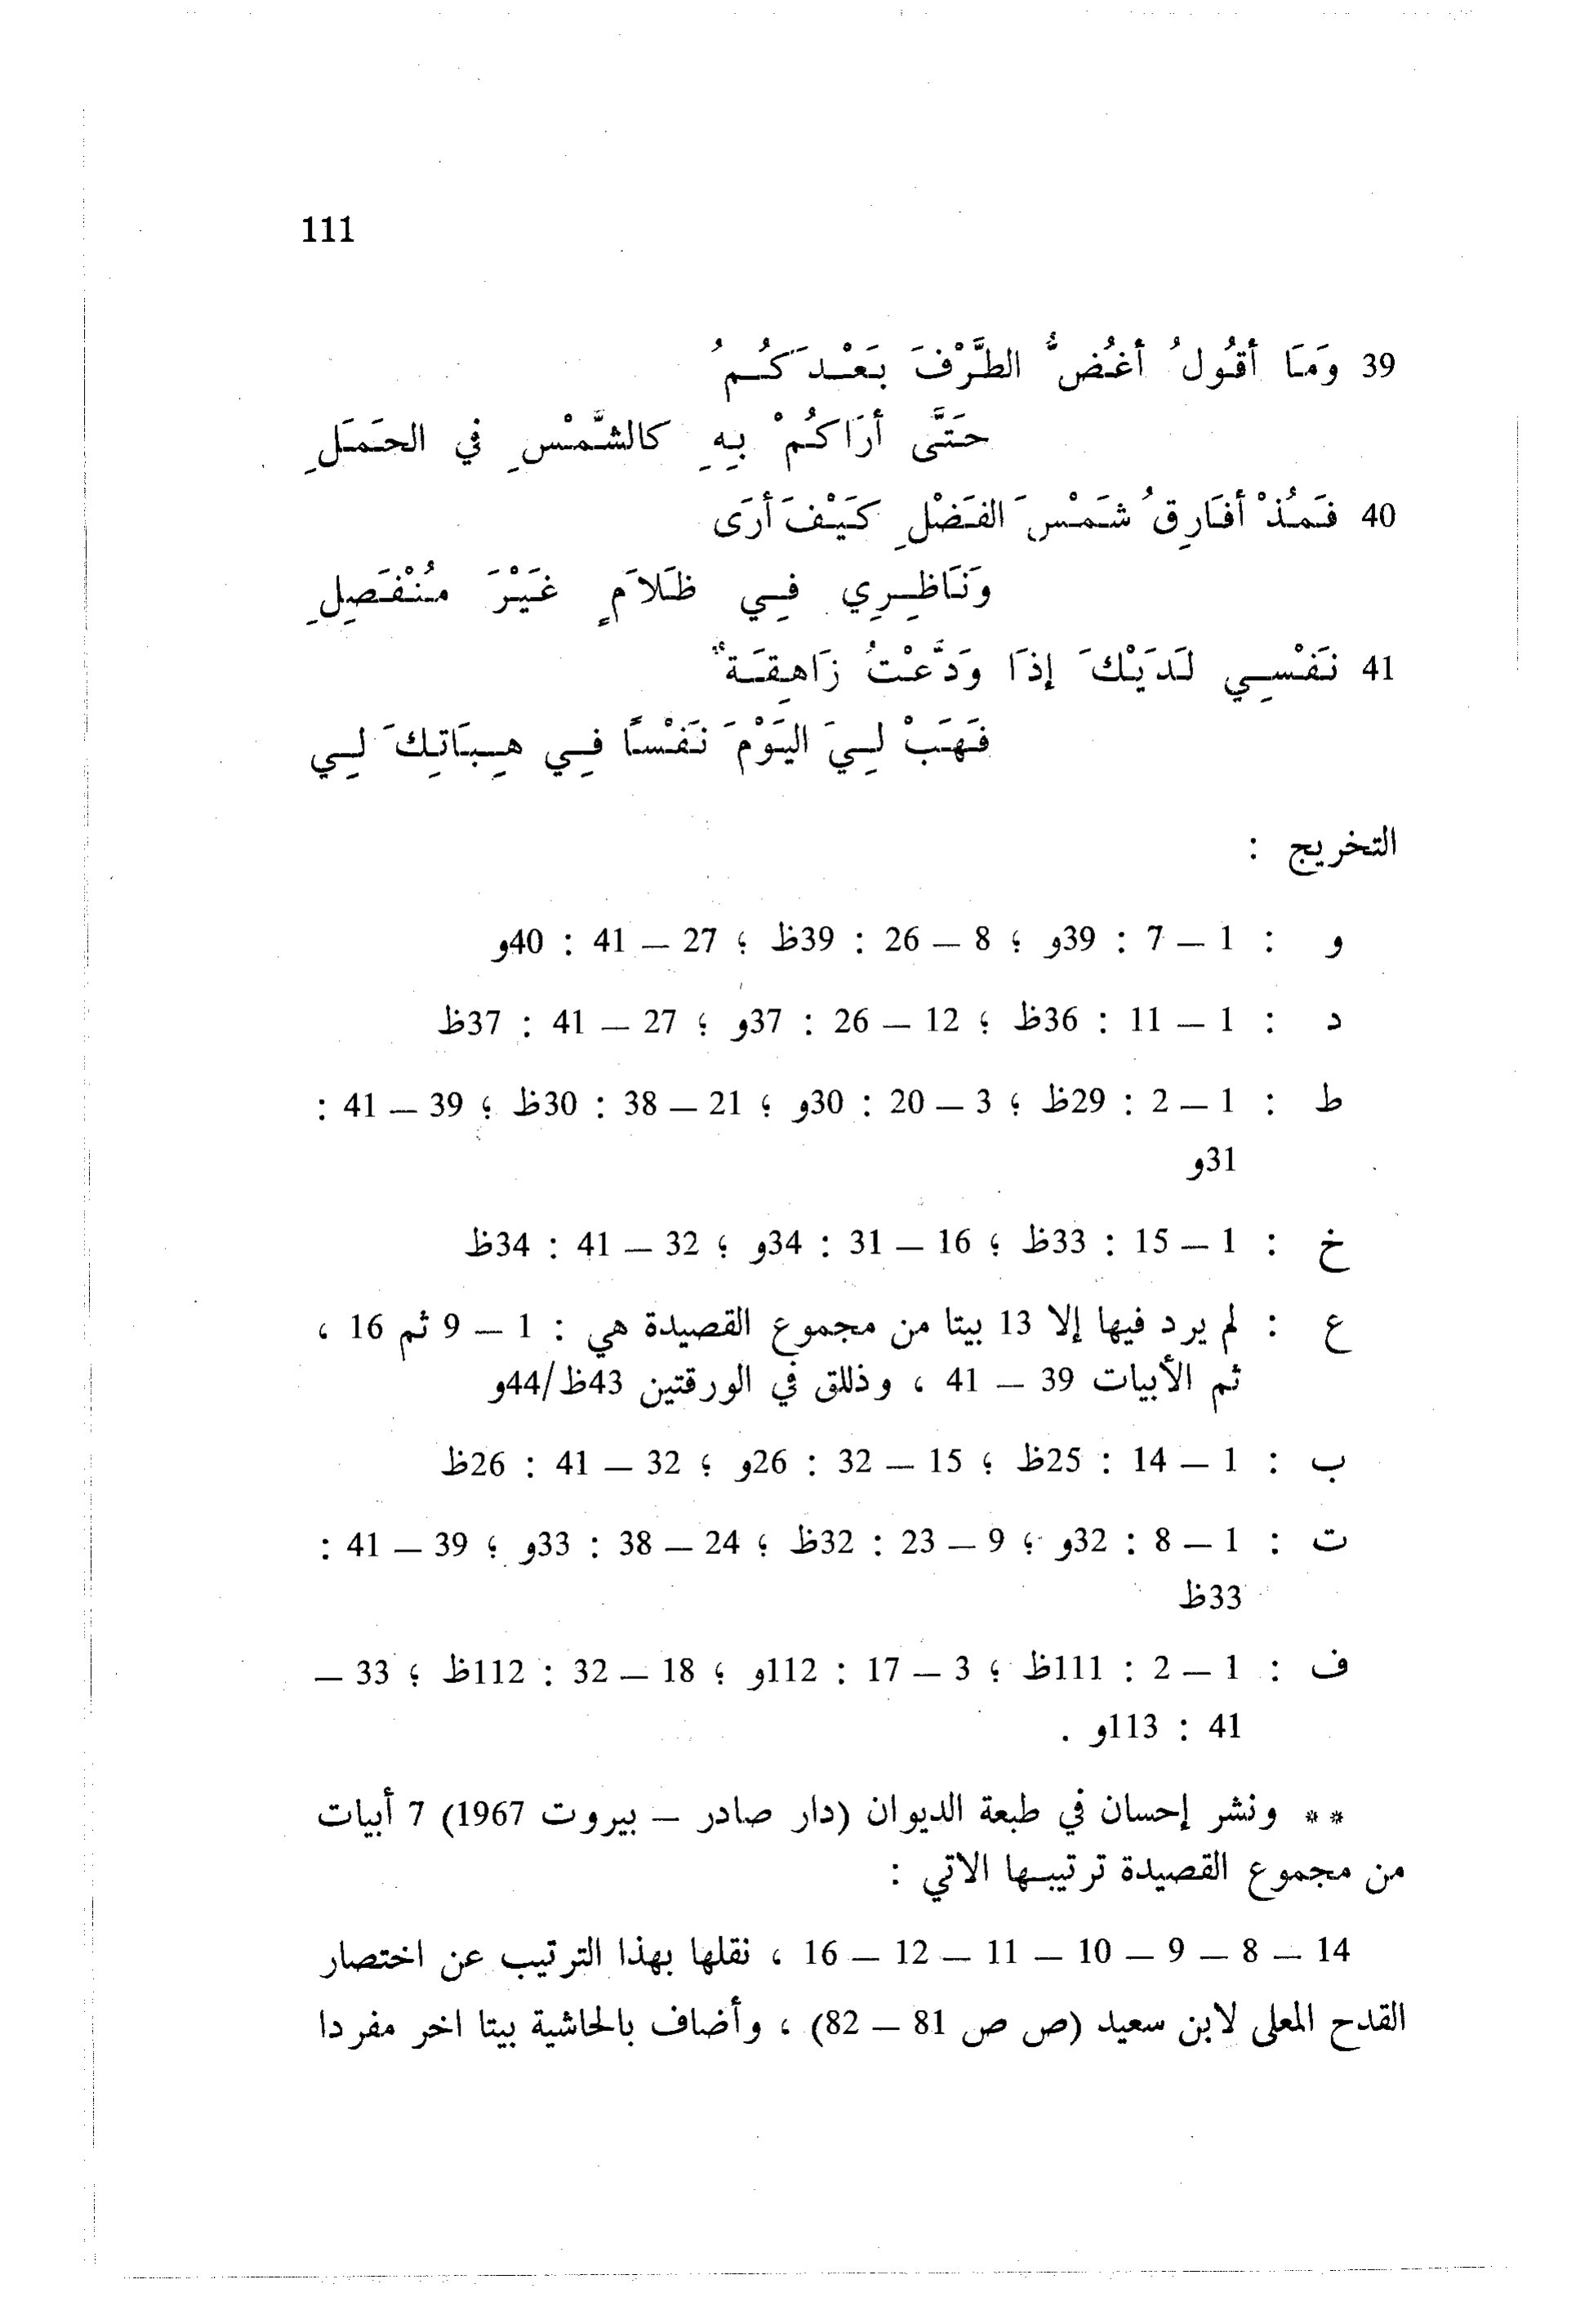 111
39 وَمَا أقُولُ أغُضُّ الطَّرْفَ بَعْدَكُمُ
حَتَّى أرَاكُمْ بِهِ كالشَّمْسِ في الحَمَلِ
40 فَمُذْ أفَارِقُ شَمْسَ الفَضْلِ كَيْفَ أرَى
وَنَاظِرِي فِي ظَلاَمٍ غَيْرَ مُنْفَصِلِ
41 نَفْسِي لَدَيْكَ إذَا وَدَّعْتُ زَاهِقَةٌ
فَهَبْ لِيَ اليَوْمَ نَفْسًا فِي هِبَاتِكَ لِي
التخريج :
و : 1 — 7 : 39و ؛ 8 — 26 : 39ظ ؛ 27 — 41 : 40و
د : 1 — 11 : 36ظ ؛ 12 — 26 : 37و ؛ 27 — 41 : 37ظ
ط : 1 — 2 : 29ظ ؛ 3 — 20 : 30و ؛ 21 — 38 : 30ظ ؛ 39 — 41 :
31و
خ : 1 — 15 : 33ظ ؛ 16 — 31 : 34و ؛ 32 — 41 : 34ظ
ع : لم يرد فيها إلا 13 بيتا من مجموع القصيدة هي : 1 — 9 ثم 16 ،
ثم الأبيات 39 — 41 ، وذللق في الورقتين 43ظ/44و
ب : 1 — 14 : 25ظ ؛ 15 — 32 : 26و ؛ 32 — 41 : 26ظ
ت : 1 — 8 : 32و ؛ 9 — 23 : 32ظ ؛ 24 — 38 : 33و ؛ 39 — 41 :
33ظ
ف : 1 — 2 : 111ظ ؛ 3 — 17 : 112و ؛ 18 — 32 : 112ظ ؛ 33 —
41 : 113و .
** ونشر إحسان في طبعة الديوان (دار صادر — بيروت 1967) 7 أبيات
من مجموع القصيدة ترتيبها الاتي :
14 — 8 — 9 — 10 — 11 — 12 — 16 ، نقلها بهذا الترتيب عن اختصار
القدح المعلى لابن سعيد (ص ص 81 — 82) ، وأضاف بالحاشية بيتا اخر مفردا